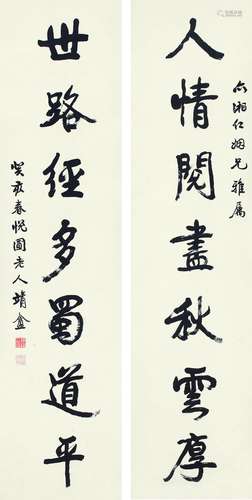 六湘仁姻兄雅属
人情閱盡秋雲厚
世路經多蜀道平
癸亥春悅園老人靖盦